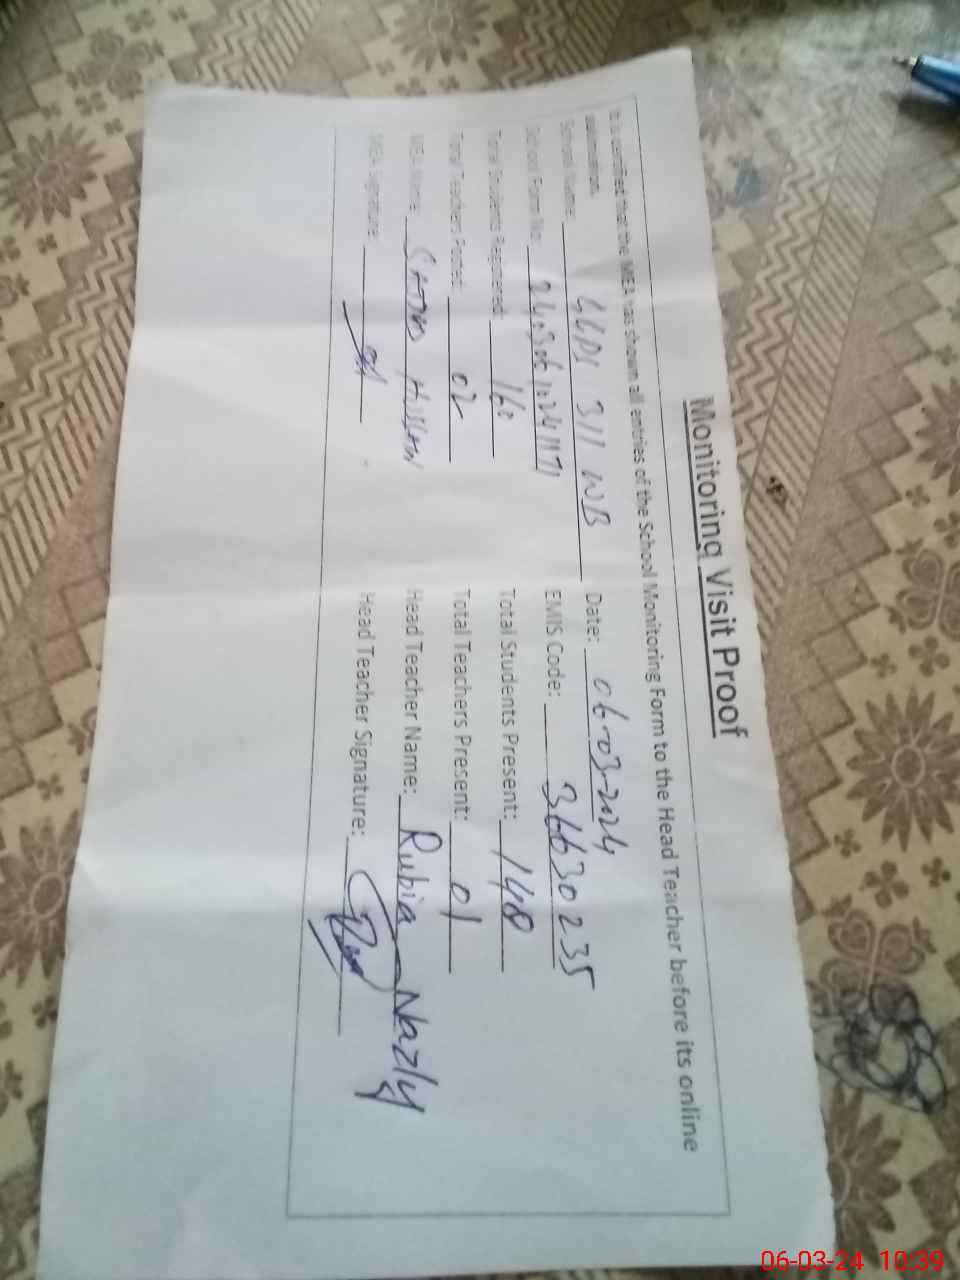 Monitoring Visit Proof
It is certified that the MEA has shown all entries of the School Monitoring Form to the Head Teacher before its online
submission.
School Name: 311 WB Date: 06-03-2024
School Form No: EMIS Code: 36630235
Total Students Registered: 160 Total Students Present: 140
Total Teachers Posted: 02 Total Teachers Present: 01
MEA Name: Hussain Head Teacher Name: Rubia Nazly
MEA Signature: Head Teacher Signature:
06-03-24 10:39